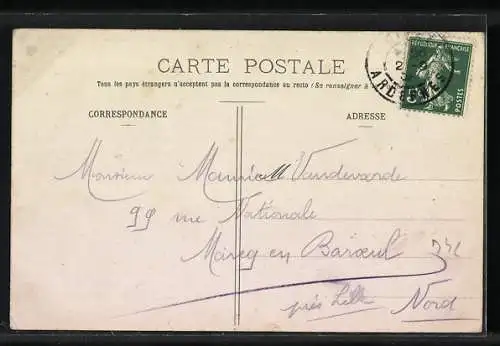 CARTE POSTALE
Tous les pays étrangers n'acceptent pas la correspondance au recto (Se renseigner à
CORRESPONDANCE
ADRESSE
RÉPUBLIQUE FRANÇAISE
5c
POSTES
ARDENNES
Monsieur Maurice Vandevoorde
99 rue Nationale
Marcq en Barœul
près Lille
Nord